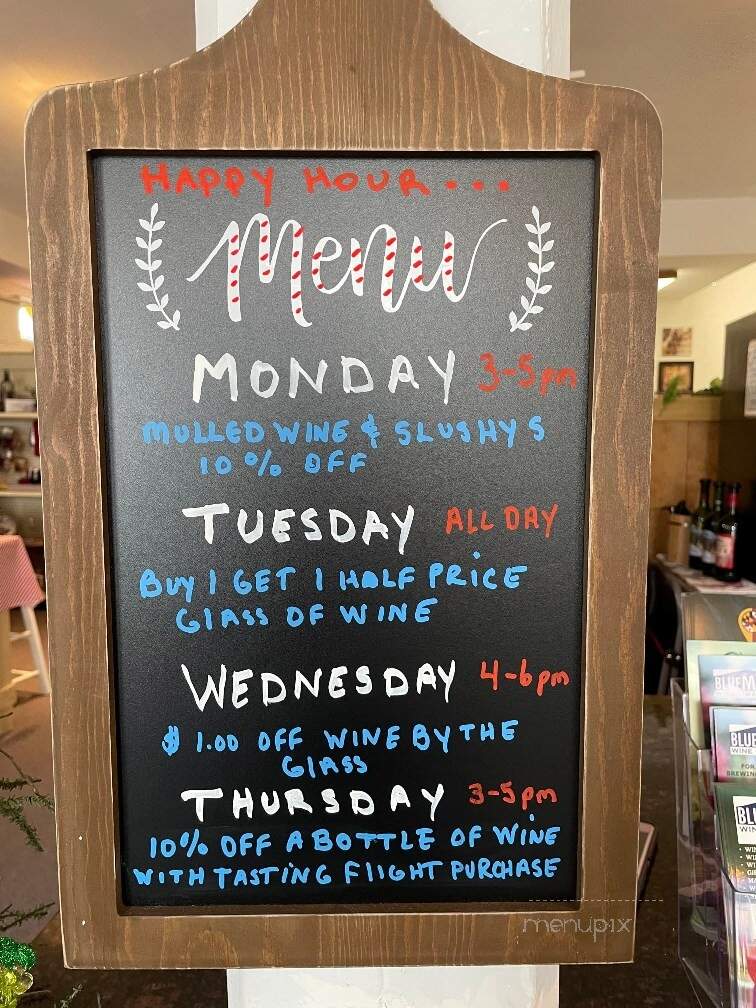 HAPPY HOUR...
Menu
MONDAY 3-5pm
MULLED WINE & SLUSHYS
10% OFF
TUESDAY ALL DAY
BUY 1 GET 1 HALF PRICE
GLASS OF WINE
WEDNESDAY 4-6pm
$1.00 OFF WINE BY THE
GLASS
THURSDAY 3-5pm
10% OFF A BOTTLE OF WINE
WITH TASTING FLIGHT PURCHASE
menupix